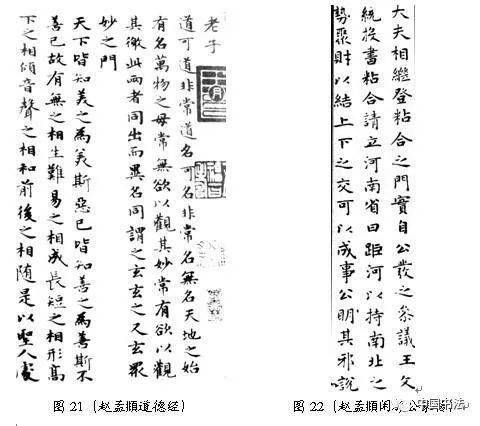 老子
道可道非常道名可名非常名無名天地之始
有名萬物之母常無欲以觀其妙常有欲以觀
其徼此兩者同出而異名同謂之玄玄之又玄眾
妙之門
天下皆知美之為美斯惡已皆知善之為善斯不
善已故有無之相生難易之相成長短之相形高
下之相傾音聲之相和前後之相随是以聖人處
图 21（赵孟頫道德经）
大夫相繼登粘合之門實自公發之叅議王文
統投書粘合請立河南省曰距河以持南北之
勢聚財以結上下之交可以成事公明其邪說
图 22（赵孟頫闲
中国书法